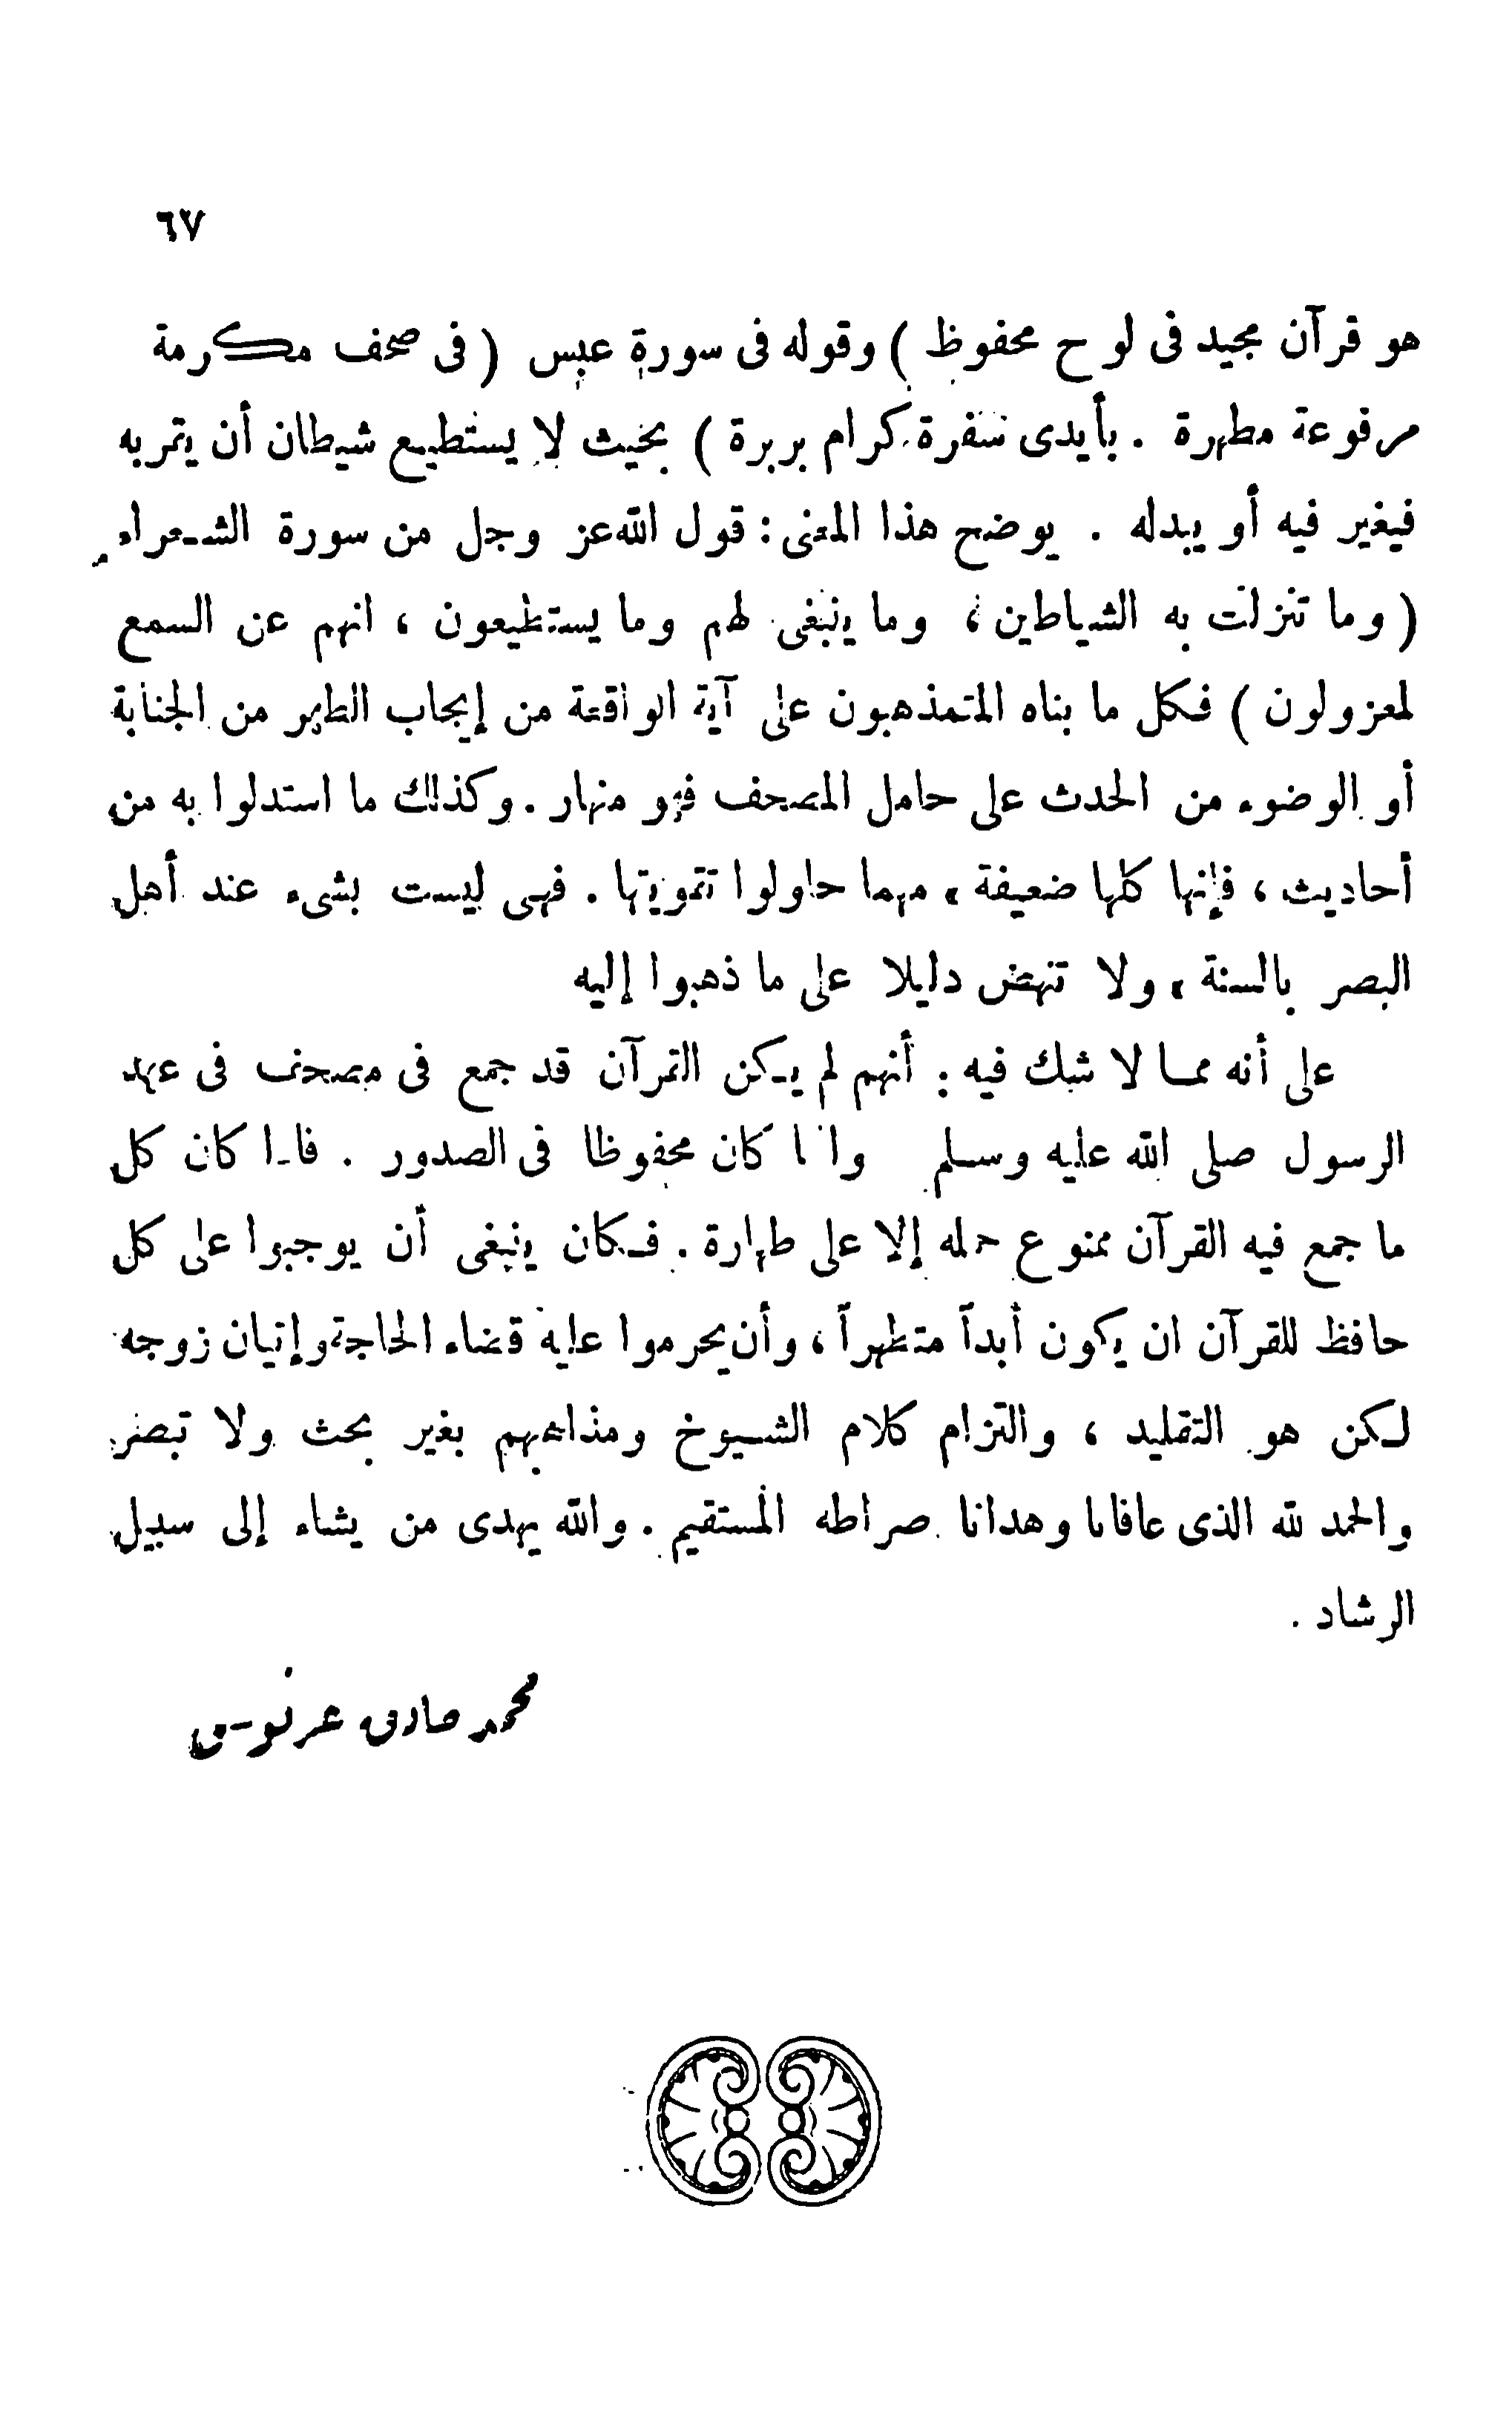 ٦٧
هو قرآن مجيد فى لوح محفوظ ) وقوله فى سورة عبس ( فى صحف مكرمة
مرفوعة مطهرة . بأيدى سفرة كرام بررة ) بحيث لا يستطيع شيطان أن يتمر به
فيغير فيه أو يبدله . يوضح هذا المعنى : قول الله عز وجل من سورة الشعراء
( وما تنزلت به الشياطين ، وما ينبغى لهم وما يستطيعون ، انهم عن السمع
لمعزولون ) فكل ما بناه المتمذهبون على آية الواقعة من إيجاب الطهر من الجنابة
أو الوضوء من الحدث على حامل المصحف فهو منهار . وكذلك ما استدلوا به من
أحاديث ، فإنها كلها ضعيفة ، مهما حاولوا تقويتها . فهى ليست بشىء عند أهل
البصر بالسنة ، ولا تنهض دليلا على ما ذهبوا إليه
على أنه مما لا شك فيه : أنهم لم يكن القرآن قد جمع فى مصحف فى عهد
الرسول صلى الله عليه وسلم وانما كان محفوظا فى الصدور . فاذا كان كل
ما جمع فيه القرآن ممنوع حمله إلا على طهارة . فكان ينبغى أن يوجبوا على كل
حافظ للقرآن ان يكون أبداً متطهراً ، وأن يحرموا عليه قضاء الحاجة وإتيان زوجه
لكن هو التقليد ، والتزام كلام الشيوخ ومذاهبهم بغير بحث ولا تبصر
والحمد لله الذى عافانا وهدانا صراطه المستقيم . والله يهدى من يشاء إلى سبيل
الرشاد .
محمد صادق عرنوس